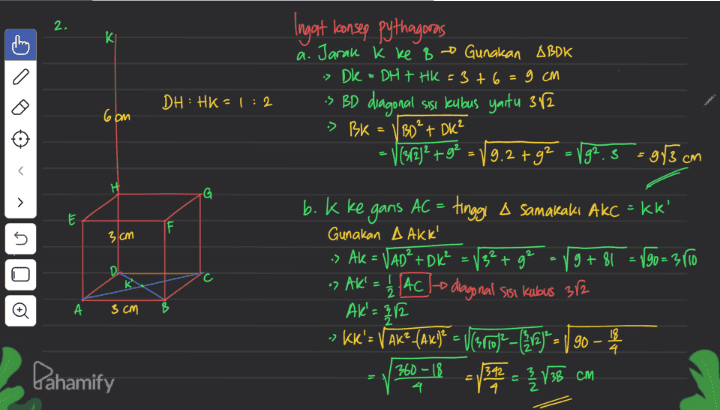 2.
K
6 cm
DH : HK = 1 : 2
H
G
E
F
3 cm
D
K'
C
A
3 cm
B
Pahamify
Ingat konsep pythagoras
a. Jarak K ke B → Gunakan ΔBDK
·> DK = DH + HK = 3 + 6 = 9 cm
·> BD diagonal sisi kubus yaitu 3√2
·> BK = √BD² + DK²
= √(3√2)² + 9² = √9.2 + 9² = √9². 3 = 9√3 cm
b. K ke garis AC = tinggi Δ samakaki AKC = KK'
Gunakan Δ AKK'
·> AK = √AD² + DK² = √3² + 9² = √9 + 81 = √90 = 3√10
·> AK' = 1/2 AC → diagonal sisi kubus 3√2
AK' = 3/2 √2
·> KK' = √AK² - (AK')² = √(3√10)² - (3/2 √2)² = √90 - 18/4
= √360 - 18/4 = √342/4 = 3/2 √38 cm